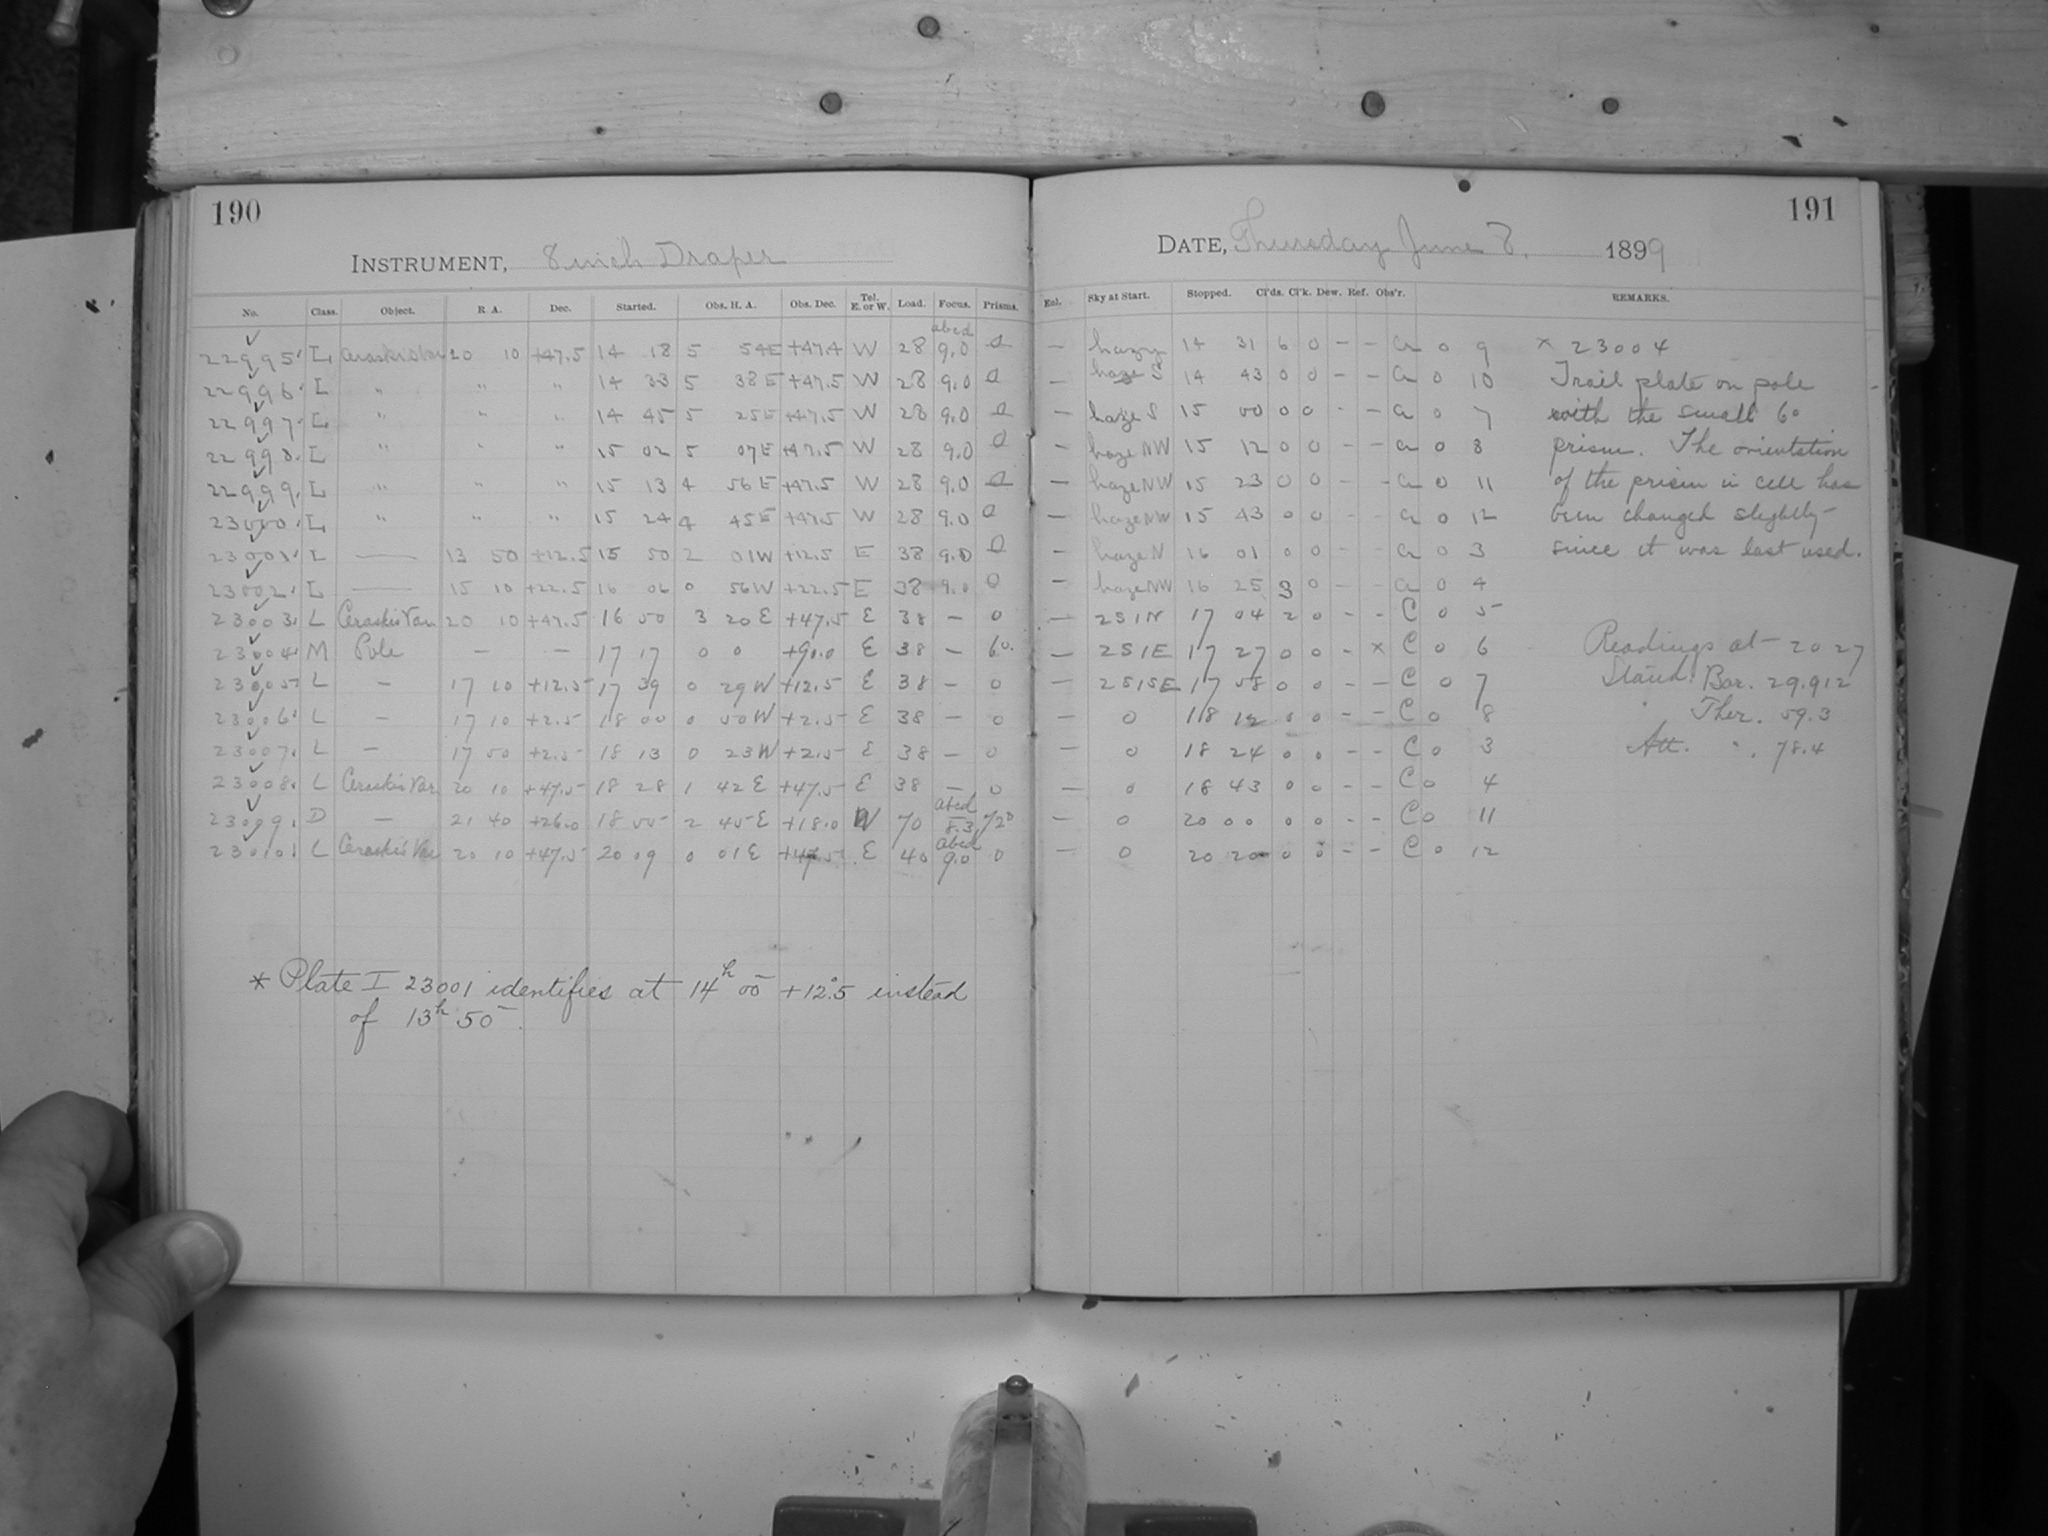 190
INSTRUMENT, 8 inch Draper
No. Class. Object. R. A. Dec. Started. Obs. H. A. Obs. Dec. Tel. E. or W. Load. Focus. Prisms.
abcd
22995 L 20 10 +47.5 14 18 5 54E +47.4 W 28 9.0 0
22996 L " " " 14 33 5 38E +47.5 W 28 9.0 0
22997 L " " " 14 45 5 25E +47.5 W 28 9.0 0
22998 L " " " 15 02 5 07E +47.5 W 28 9.0 0
22999 L " " " 15 13 4 56E +47.5 W 28 9.0 0
23000 L " " " 15 24 4 45E +47.5 W 28 9.0 0
23001 L — 13 50 +12.5 15 50 2 01W +12.5 E 38 9.0 0
23002 L — 15 10 +22.5 16 06 0 56W +22.5 E 38 9.0 0
23003 L Ceraskis Var 20 10 +47.5 16 50 3 20E +47.5 E 38 – 0
23004 M Pole – – 17 17 0 0 +90.0 E 38 – 60
23005 L – 17 10 +12.5 17 39 0 29W +12.5 E 38 – 0
23006 L – 17 10 +2.5 18 00 0 50W +2.5 E 38 – 0
23007 L – 17 50 +2.5 18 13 0 23W +2.5 E 38 – 0
23008 L Ceraskis Var 20 10 +47.5 18 28 1 42E +47.5 E 38 – 0
abcd
23009 D – 21 40 +26.0 18 55 2 45E +18.0 W 70 8.3 72°
abcd
23010 L Ceraskis Var 20 10 +47.5 20 09 0 01E +47.5 E 40 9.0 0
* Plate I 23001 identifies at 14h 00 +12°.5 instead
of 13h 50
191
DATE, Thursday June 8, 1899
Enl. Sky at Start. Stopped. Cl'ds. Cl'k. Dew. Ref. Obs'r. REMARKS.
– hazy 14 31 6 0 – – a 0 9
– haze S 14 43 0 0 – – a 0 10
– haze S 15 00 0 0 – – a 0 7
– haze NW 15 12 0 0 – – a 0 8
– haze NW 15 23 0 0 – – a 0 11
– haze NW 15 43 0 0 – – a 0 12
– haze N 16 01 0 0 – – a 0 3
– haze NW 16 25 3 0 – – a 0 4
– 2S1N 17 04 2 0 – – C 0 5
– 2S1E 17 27 0 0 – x C 0 6
– 2S1SE 17 58 0 0 – – C 0 7
– 0 18 12 0 0 – – C 0 8
– 0 18 24 0 0 – – C 0 3
– 0 18 43 0 0 – – C 0 4
– 0 20 00 0 0 – – C 0 11
– 0 20 20 0 0 – – C 0 12
x 23004
Trail plate on pole
with the small 6°
prism. The orientation
of the prism in cell has
been changed slightly
since it was last used.
Readings at 20 27
Stand. Bar. 29.912
" Ther. 59.3
Att. " . 78.4